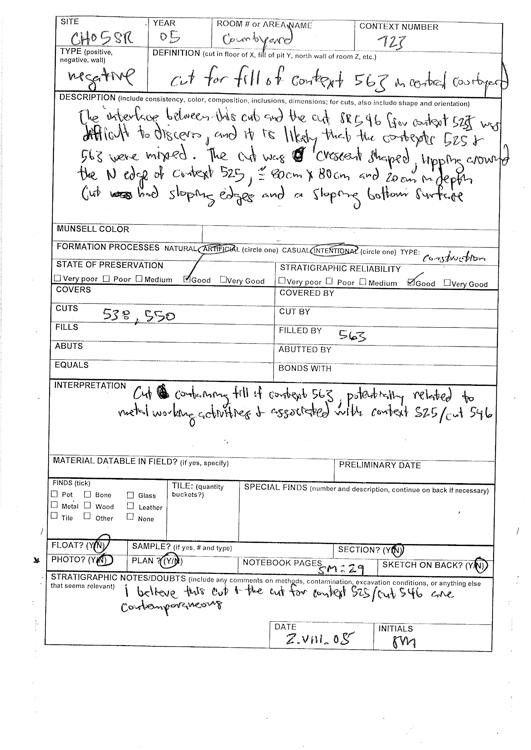 SITE CH05SR YEAR 05 ROOM # or AREA NAME Courtyard CONTEXT NUMBER 723
TYPE (positive, negative, wall) negative DEFINITION (cut in floor of X, fill of pit Y, north wall of room Z, etc.) cut for fill of context 563 in central courtyard
DESCRIPTION (include consistency, color, composition, inclusions, dimensions; for cuts, also include shape and orientation)
The interface between this cut and the cut 546 for context 525 was
difficult to discern, and it is likely that the contexts 525 &
563 were mixed. The cut was crescent shaped, lipping around
the N edge of context 525, 80cm x 80cm and 20cm in depth
Cut had sloping edges and a sloping bottom surface
MUNSELL COLOR
FORMATION PROCESSES NATURAL ARTIFICIAL (circle one) CASUAL INTENTIONAL (circle one) TYPE: construction
STATE OF PRESERVATION STRATIGRAPHIC RELIABILITY
Very poor Poor Medium Good Very Good Very poor Poor Medium Good Very Good
COVERS COVERED BY
CUTS 538, 550 CUT BY
FILLS FILLED BY 563
ABUTS ABUTTED BY
EQUALS BONDS WITH
INTERPRETATION Cut containing fill of context 563, potentially related to
metal working activities & associated with context 525/cut 546
MATERIAL DATABLE IN FIELD? (if yes, specify) PRELIMINARY DATE
FINDS (tick) TILE: (quantity buckets?) SPECIAL FINDS (number and description, continue on back if necessary)
Pot Bone Glass
Metal Wood Leather
Tile Other None
FLOAT? (Y/N) SAMPLE? (if yes, # and type) SECTION? (Y/N)
PHOTO? (Y/N) PLAN? (Y/N) NOTEBOOK PAGES SM:29 SKETCH ON BACK? (Y/N)
STRATIGRAPHIC NOTES/DOUBTS (include any comments on methods, contamination, excavation conditions, or anything else
that seems relevant) I believe this cut & the cut for context 525/cut 546 are
contemporaneous
DATE 2.VIII.05 INITIALS SM